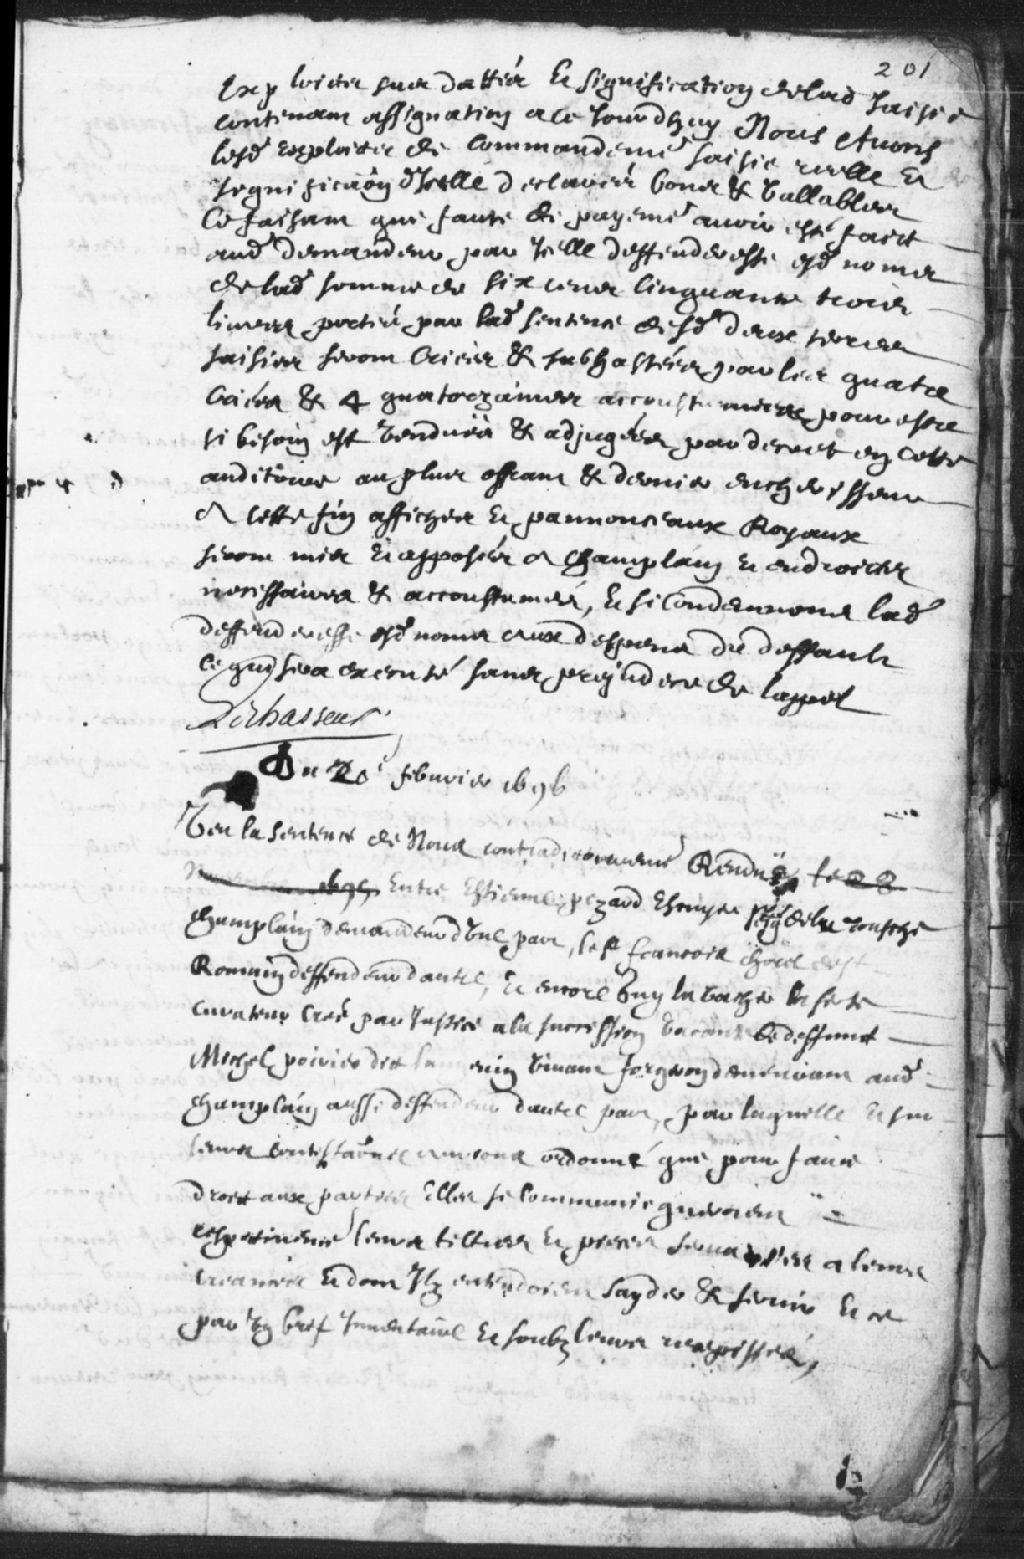 201
Exploites sus dattés Et signification de lad saisie
contenant assignation a ce Jourdhuy Nous Avons
lesd Exploites de Commandemt saisie reelle Et
signiffica͠on d'Icelle declarées bones & vallables
Ce faisant que faute de payemt avoir esté faict
aud demandeur par Icelle deffenderesse esd nomes
de lad somme de six cens Cinquante trois
livres portée par lad sentence lesd deux terres
saisies seront Criées & subhastées par les quatre
Criées & 4 quatorzaines accoustumées pour estre
si besoin est vendues & adjugées par decret en cette
auditoire au plus offrant & dernier encherisseur
A cette fin affiches Et pannonceaux Royaux
seront mis Et apposés A Champlain Et endroictes
necessaires & accoustumés, Et si Condamnons lad
deffenderesse esd noms aux despens du deffault
Ce qui sera executé sans prejudice de lappel
LeChasseur
Du 20e febvrier 1696
Veu la sentence de Nous contradictoirement Rendüe le 28
1695 Entre Estienne pezard Escuyer sr de la touche
Champlain demandeur d'Une part, le sr francois chorel dt st
Romain deffendeur d'autre, Et encore Guy
Curateur Creé par Justice a la succession vacante de deffunt
Michel poirier dit langevin vivant forgeron demeurant aud
Champlain aussi deffendeur dautre part, par laquelle Et sur
leurs contesta͠ons avions ordonné que pour faire
droit aux parties Elles se Communiqueroient
respectivemt leurs tiltres Et pieces a leurs
creances Et dont Ilz entendoient sayder & servir Et ce
par Un bref Inventaire Et soubz leurs recepissés,